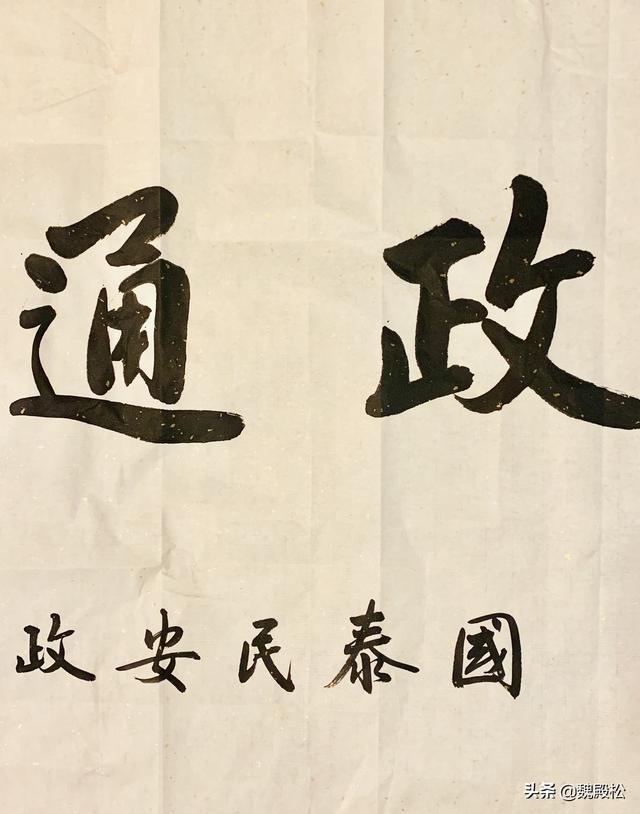 政通
國泰民安政
头条 @魏殿松